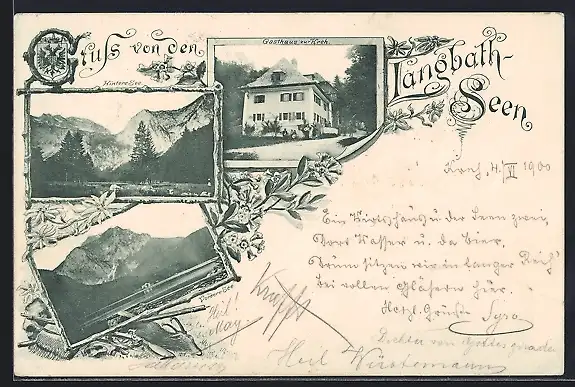 Gruß von den
Langbath-
Seen.
Gasthaus zur Kreh.
Hinterer See
Vorderer See
Kreh, 4./VI 1900
Ein Wirtshaus u. der Seen zwei,
Dort Wasser u. da Bier,
Drum sitzen wir in langer Reih'
bei vollen Gläsern hier.
Herzl. Gruß
Dichter von Gottes gnaden
Heil!
May
Heil